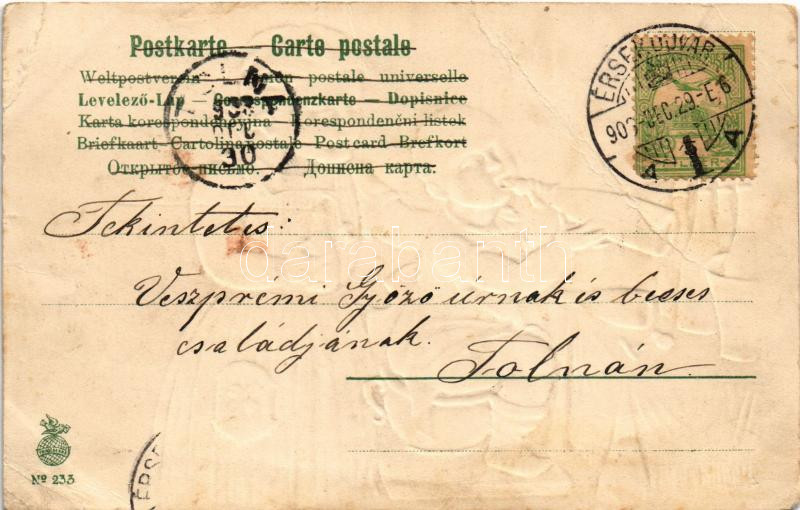 Postkarte — Carte postale
Weltpostverein — Union postale universelle
Levelező-Lap — Correspondenzkarte — Dopisnice
Karta korespondencyjna — Korespondenční listek
Briefkaart — Cartolina postale — Post card — Brefkort
Открытое письмо. — Дописна карта.
TOLNA
903
DEC
30
ÉRSEKUJVÁR
903 DEC. 29-E.6
A 1 A
Tekintetes:
Veszprémi Győző úrnak és becses
családjának.
Tolnán.
darabanth
Nº 233
ÉRSE